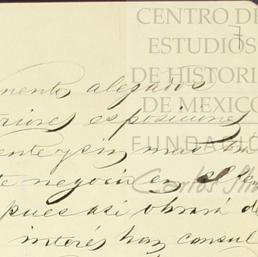 CENTRO DE
ESTUDIOS
DE HISTORI
DE MEXICO
FUNDACIÓN
Carlos Sli
mentos alegados
riores esposiciones
ente y sin mas tra
te negocio en el
pues asi obrará de
interés han consul